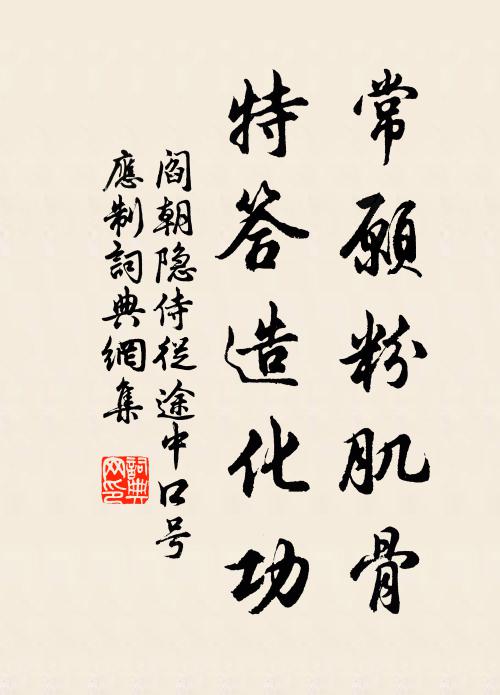 常願粉肌骨
特答造化功
閻朝隐侍從途中口号
應制詞典網集
詞典网印